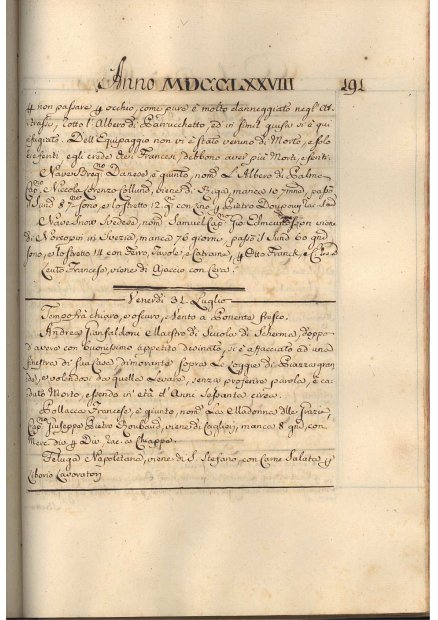 Anno MDCCLXXVIII 191
non passare occhio, come pure è molto danneggiato negl'At-
trassi, rotto l'Albero di Parrucchetto, ed in simil guisa si è qui
refugiato. Dell'Equipaggio non vi è stato veruno di Morto, e solo
tre feriti, egli crede che i Francesi debbono aver più Morti, e feriti.
Nave Danese è giunto, nom. L'Albero di Palme
Cap. Niccola Lorenzo Collund, viene di Riga, manca 10 passò
il Sund giorno, e lo stretto 12. con Pietro
Nave Snow Svedese, nom. Samuel Cap. Gio
di Norcopin in Svezia, manca 76 giorni, passò il Sund 60
sono, e lo stretto 14 con Ferro, Tavole, e Catrame, Otto Franck, e
Leuto Francese, viene di Ajaccio con Cera.
Venerdi 31 Luglio
Tempo frà chiaro, e oscuro, e Vento a Ponente fresco.
Andrea Fanfaldoni e Maestro di Scuola di Scherma, doppo
d'avere con buonissimo appetito desinato, si è affacciato ad una
finestra di sua Casa dimorante sopra Le Logge di Piazza gran
de, e volendosi da quella Levare, senza proferire parola, è ca-
duto Morto, essendo in età d'Anni Sessanta circa.
Pollacca Francese, è giunto, nom. La Madonna delle Grazie
Cap. Giuseppe Pietro viene di Caglieri, manca 8 con
Merc. Chiappe.
Feluga Napoletana, viene di S. Stefano, con Carne Salata
Liborio Lavoratori